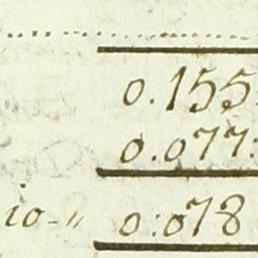 0.155
0.077:
io-〃 0:078